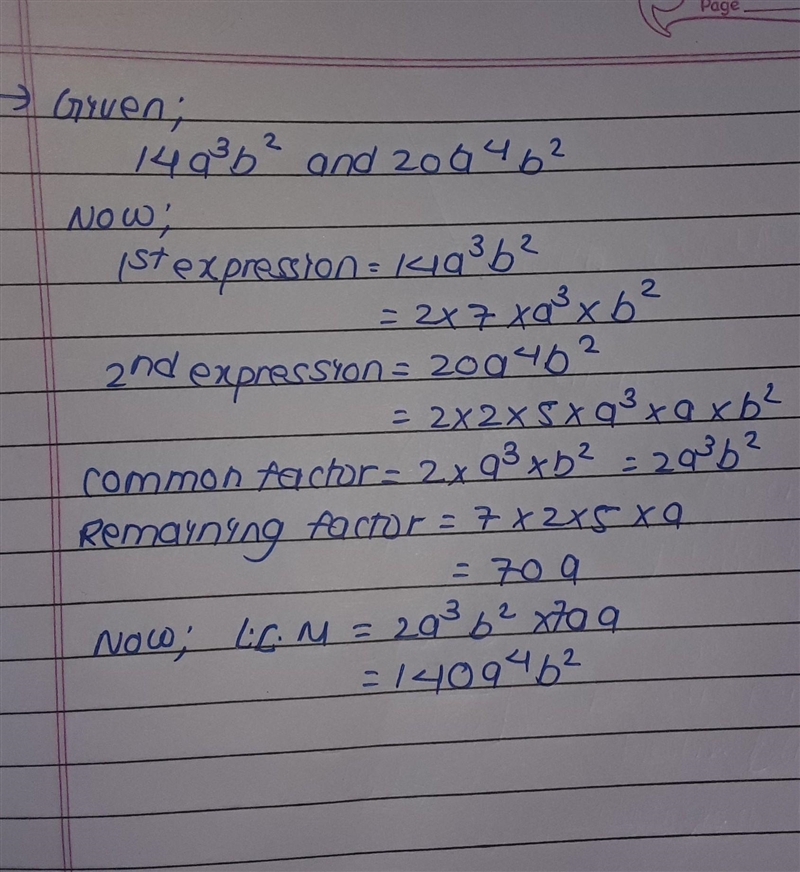 Page
→ Given;
14a³b² and 20a⁴b²
Now;
1st expression = 14a³b²
= 2×7×a³×b²
2nd expression = 20a⁴b²
= 2×2×5×a³×a×b²
common factor = 2×a³×b² = 2a³b²
Remaining factor = 7×2×5×a
= 70a
Now; L.C.M = 2a³b² ×70a
= 140a⁴b²